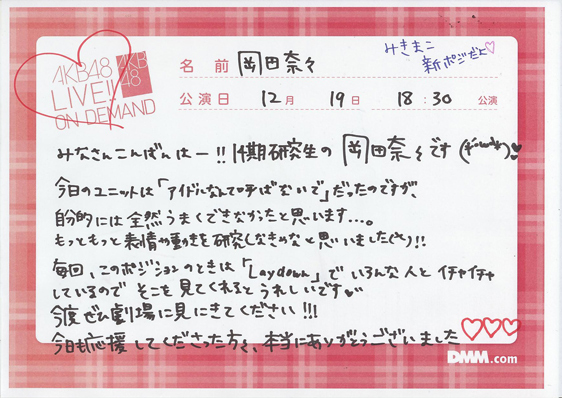 AKB48
LIVE!!
ON DEMAND
AKB
48
名前 岡田奈々
みきまこ
新ポジだよ♡
公演日 12月 19日 18:30 公演
みなさんこんばんはー!!14期研究生の岡田奈々です
今日のユニットは「アイドルなんて呼ばないで」だったのですが、
自分的には全然うまくできなかったと思います...。
もっともっと表情や動きを研究しなきゃなと思いました!!
毎回、このポジションのときは「Lay down」でいろんな人とイチャイチャ
しているのでそこを見てくれるとうれしいです♡
今度ぜひ劇場に見にきてください!!!
今日も応援してくださった方々、本当にありがとうございました
♡♡♡
DMM.com